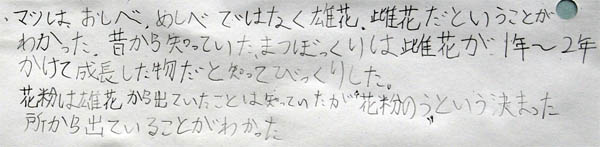 ・マツは、おしべ、めしべではなく雄花、雌花だということが
わかった。昔から知っていた、まつぼっくりは雌花が、1年〜2年
かけて成長した物だと知ってびっくりした。
花粉は雄花から出ていたことは知っていたが"花粉のう"という決まった
所から出ていることがわかった